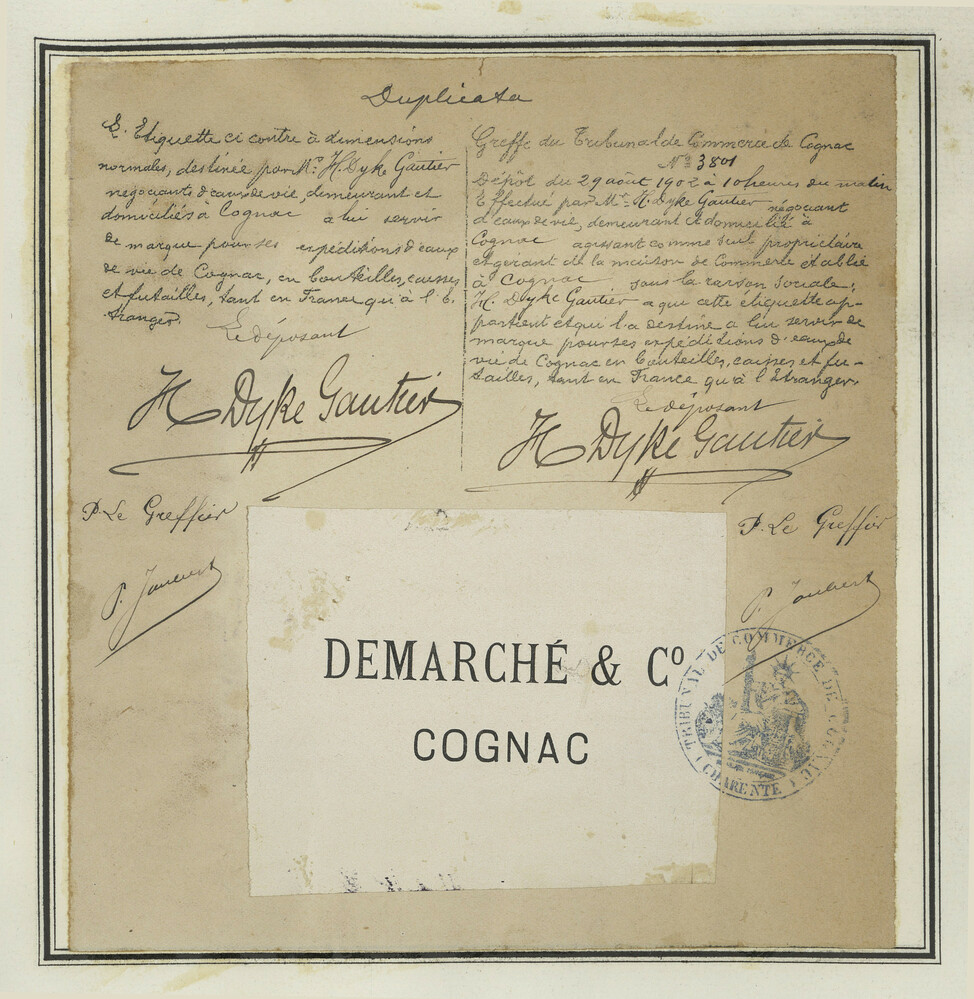 Duplicata
L'Etiquette ci contre à dimensions
normales, destinée par Mr. H. Dyke Gautier
négociants d'eaux de vie, demeurant et
domiciliés à Cognac à lui servir
de marque pour ses expéditions d'eaux
de vie de Cognac, en bouteilles, caisses
et futailles, tant en France qu'à l'É-
tranger.
Le déposant
H Dyke Gautier
P. Le Greffier
P. Joubert
Greffe du Tribunal de Commerce de Cognac
No 3801
Dépôt du 29 août 1902 à 10 heures du matin
Effectué par Mr. H. Dyke Gautier négociant
d'eaux de vie, demeurant et domicilié à
Cognac agissant comme seul propriétaire
et gérant de la maison de Commerce établie
à Cognac sous la raison sociale:
H. Dyke Gautier a qui cette étiquette ap-
partient et qui l'a destine a lui servir de
marque pour ses expéditions d'eaux de
vie de Cognac en bouteilles, caisses et fu-
tailles, tant en France qu'à l'Etranger.
Le déposant
H Dyke Gautier
P. Le Greffier
P. Joubert
DEMARCHÉ & Cº
COGNAC
TRIBUNAL DE COMMERCE DE COGNAC
(CHARENTE)